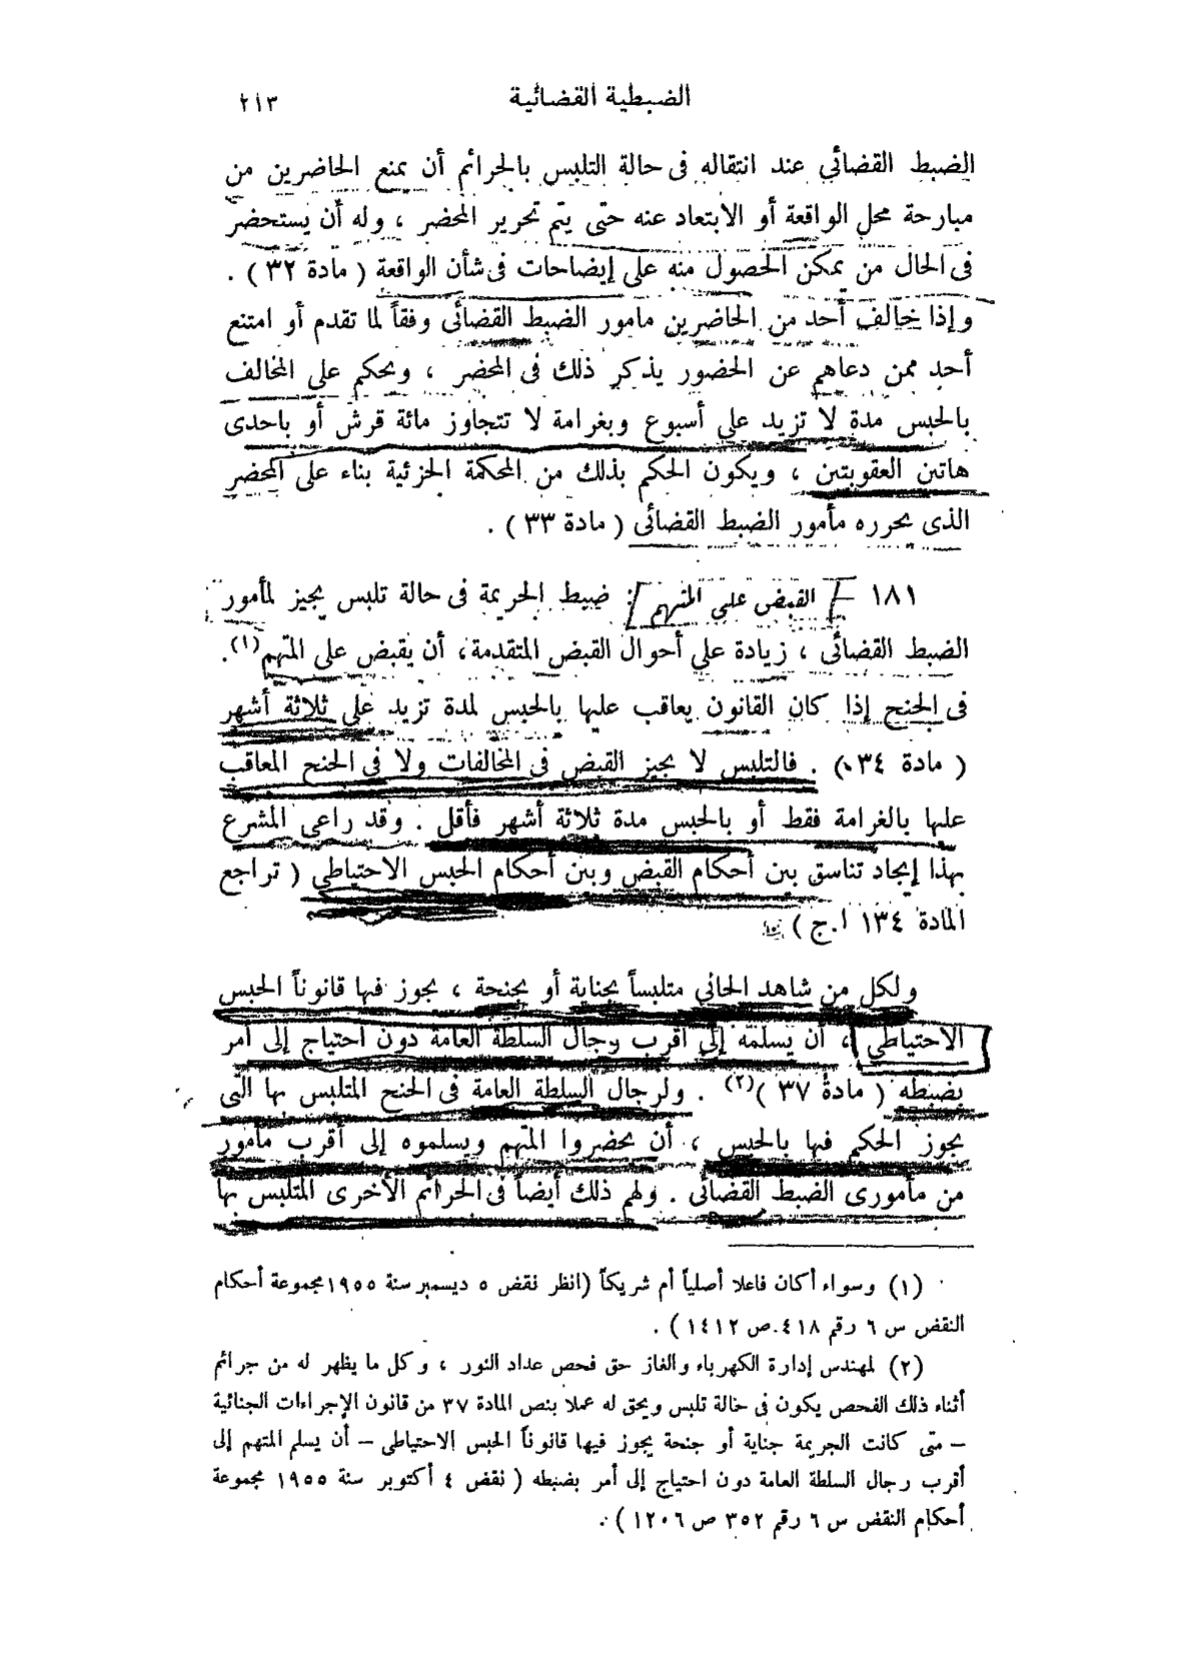 الضبطية القضائية ٢١٣
الضبط القضائي عند انتقاله فى حالة التلبس بالجرائم أن يمنع الحاضرين من
مبارحة محل الواقعة أو الابتعاد عنه حتى يتم تحرير المحضر ، وله أن يستحضر
فى الحال من يمكن الحصول منه على إيضاحات فى شأن الواقعة ( مادة ٣٢ ) .
وإذا خالف أحد من الحاضرين مامور الضبط القضائى وفقاً لما تقدم أو امتنع
أحد ممن دعاهم عن الحضور يذكر ذلك فى المحضر ، ويحكم على المخالف
بالحبس مدة لا تزيد على أسبوع وبغرامة لا تتجاوز مائة قرش أو باحدى
هاتين العقوبتين ، ويكون الحكم بذلك من المحكمة الجزئية بناء على المحضر
الذى يحرره مأمور الضبط القضائى ( مادة ٣٣ ) .
١٨١ – القبض على المتهم : ضبط الجريمة فى حالة تلبس يجيز لمأمور
الضبط القضائى ، زيادة على أحوال القبض المتقدمة ، أن يقبض على المتهم (١) .
فى الجنح إذا كان القانون يعاقب عليها بالحبس لمدة تزيد على ثلاثة أشهر
( مادة ٣٤ ) . فالتلبس لا يجيز القبض فى المخالفات ولا فى الجنح المعاقب
عليها بالغرامة فقط أو بالحبس مدة ثلاثة أشهر فأقل . وقد راعى المشرع
بهذا إيجاد تناسق بين أحكام القبض وبين أحكام الحبس الاحتياطى ( تراجع
المادة ١٣٤ ا.ج )
ولكل من شاهد الجانى متلبساً بجناية أو بجنحة ، يجوز فيها قانوناً الحبس
الاحتياطي ، أن يسلمه إلى أقرب رجال السلطة العامة دون احتياج إلى أمر
بضبطه ( مادة ٣٧ ) (٢) . ولرجال السلطة العامة فى الجنح المتلبس بها التى
يجوز الحكم فيها بالحبس ، أن يحضروا المتهم ويسلموه إلى أقرب مأمور
من مأمورى الضبط القضائى . ولهم ذلك أيضاً فى الجرائم الأخرى المتلبس بها
(١) وسواء أكان فاعلا أصلياً أم شريكاً (انظر نقض ٥ ديسمبر سنة ١٩٥٥ مجموعة أحكام
النقض س ٦ رقم ٤١٨ ص ١٤١٢ ) .
(٢) لمهندس إدارة الكهرباء والغاز حق فحص عداد النور ، وكل ما يظهر له من جرائم
أثناء ذلك الفحص يكون فى حالة تلبس ويحق له عملا بنص المادة ٣٧ من قانون الإجراءات الجنائية
– متى كانت الجريمة جناية أو جنحة يجوز فيها قانوناً الحبس الاحتياطى – أن يسلم المتهم إلى
أقرب رجال السلطة العامة دون احتياج إلى أمر بضبطه ( نقض ٤ أكتوبر سنة ١٩٥٥ مجموعة
أحكام النقض س ٦ رقم ٣٥٢ ص ١٢٠٦ ) .